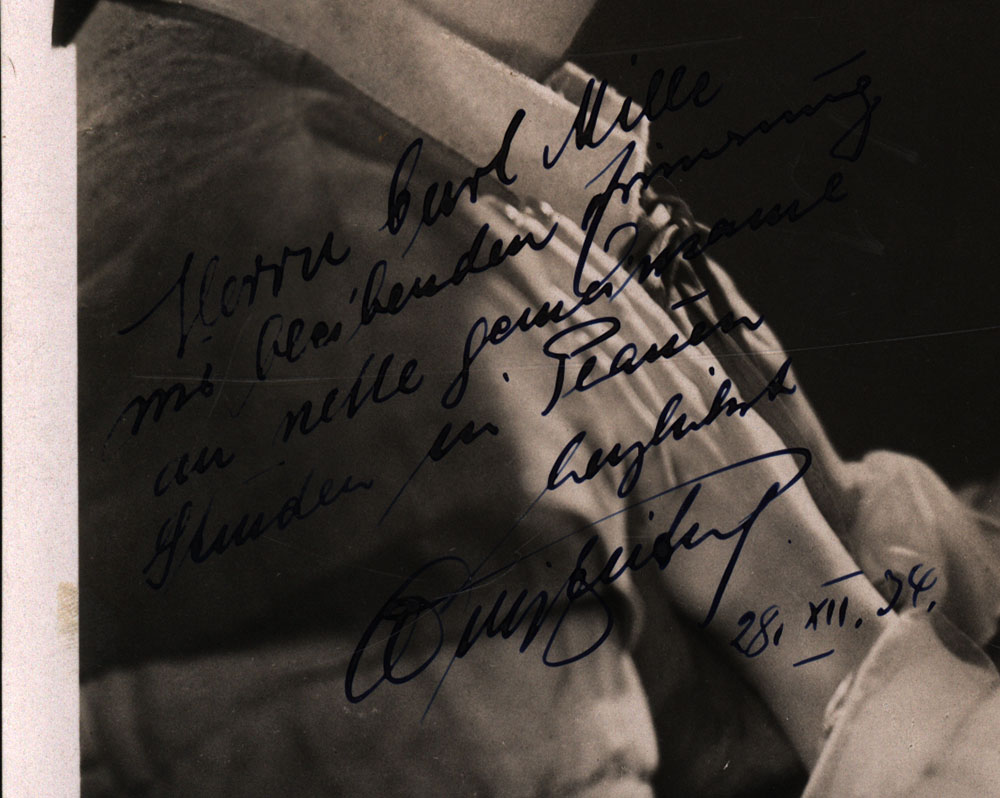 Herrn Carl Mille
mit bleibenden Erinnerung
an nette gemeinsame
Stunden in Plauen
herzlichst
28. XII. 34.